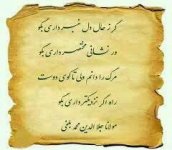 گر ز حال دل خبر داری بگو
ور نشانی مختصر داری بگو
مرگ را دانم ولی تا کوی دوست
راه اگر نزدیکتر داری بگو
مولانا جلال الدین محمد بلخی